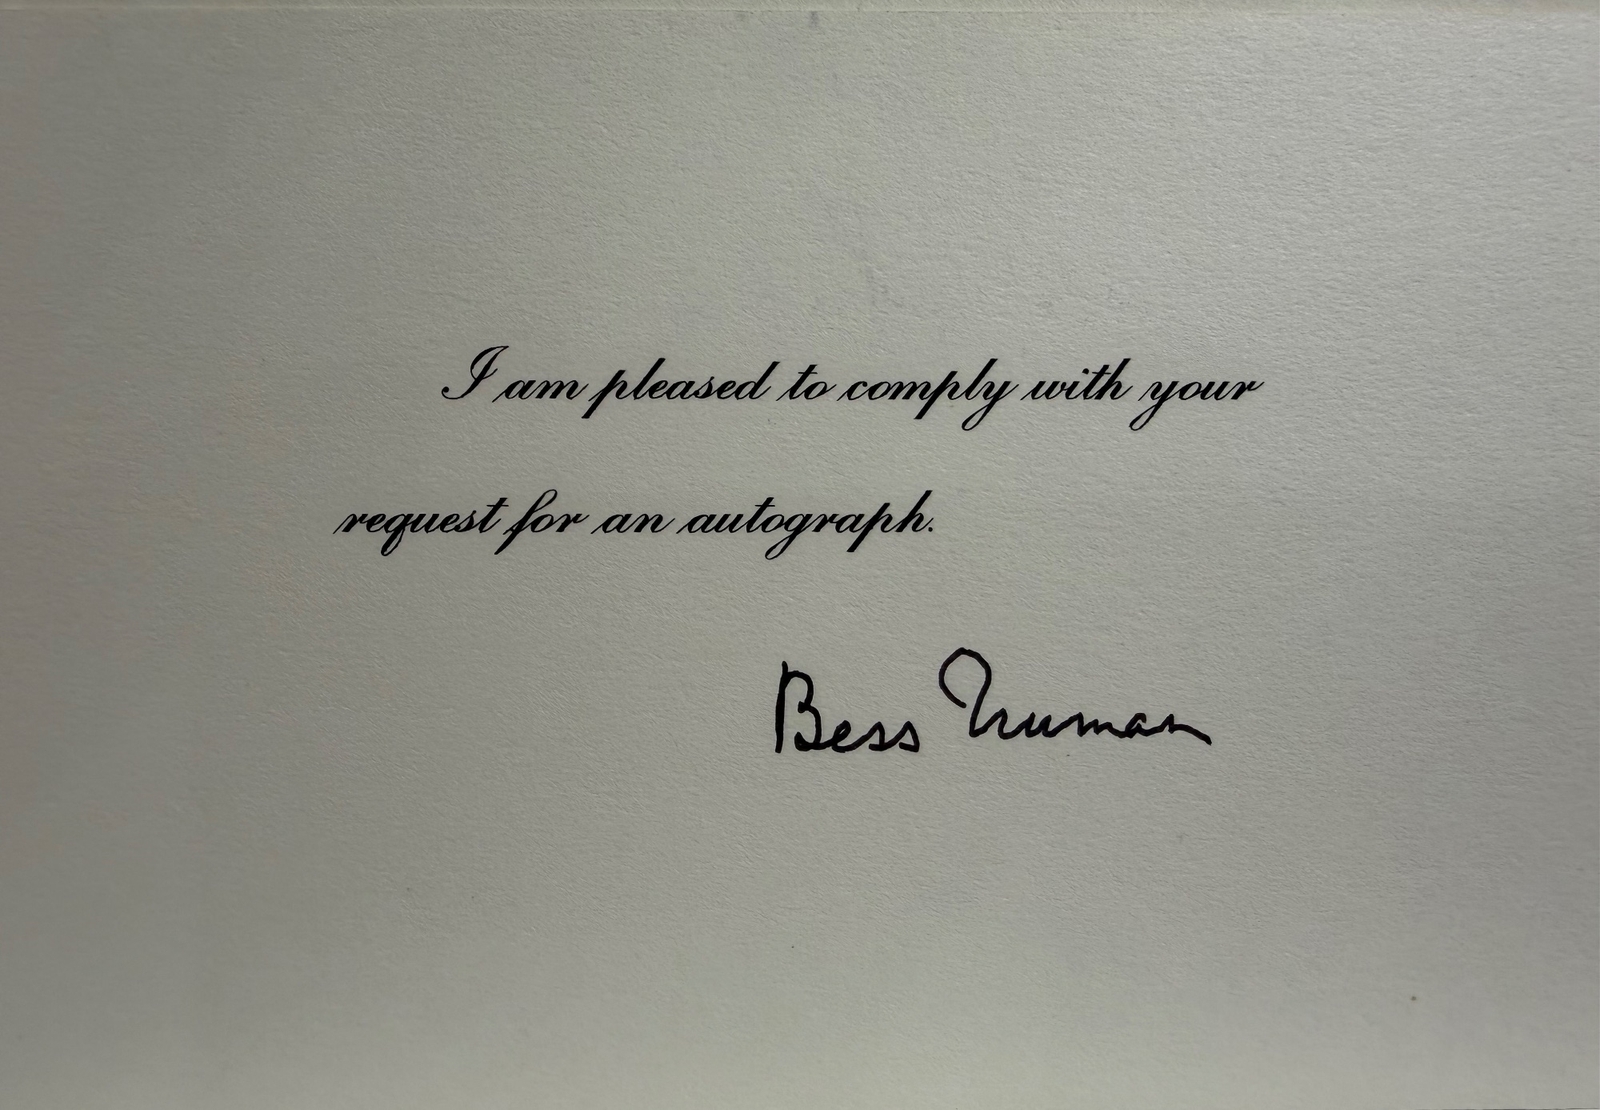 I am pleased to comply with your
request for an autograph.
Bess Truman